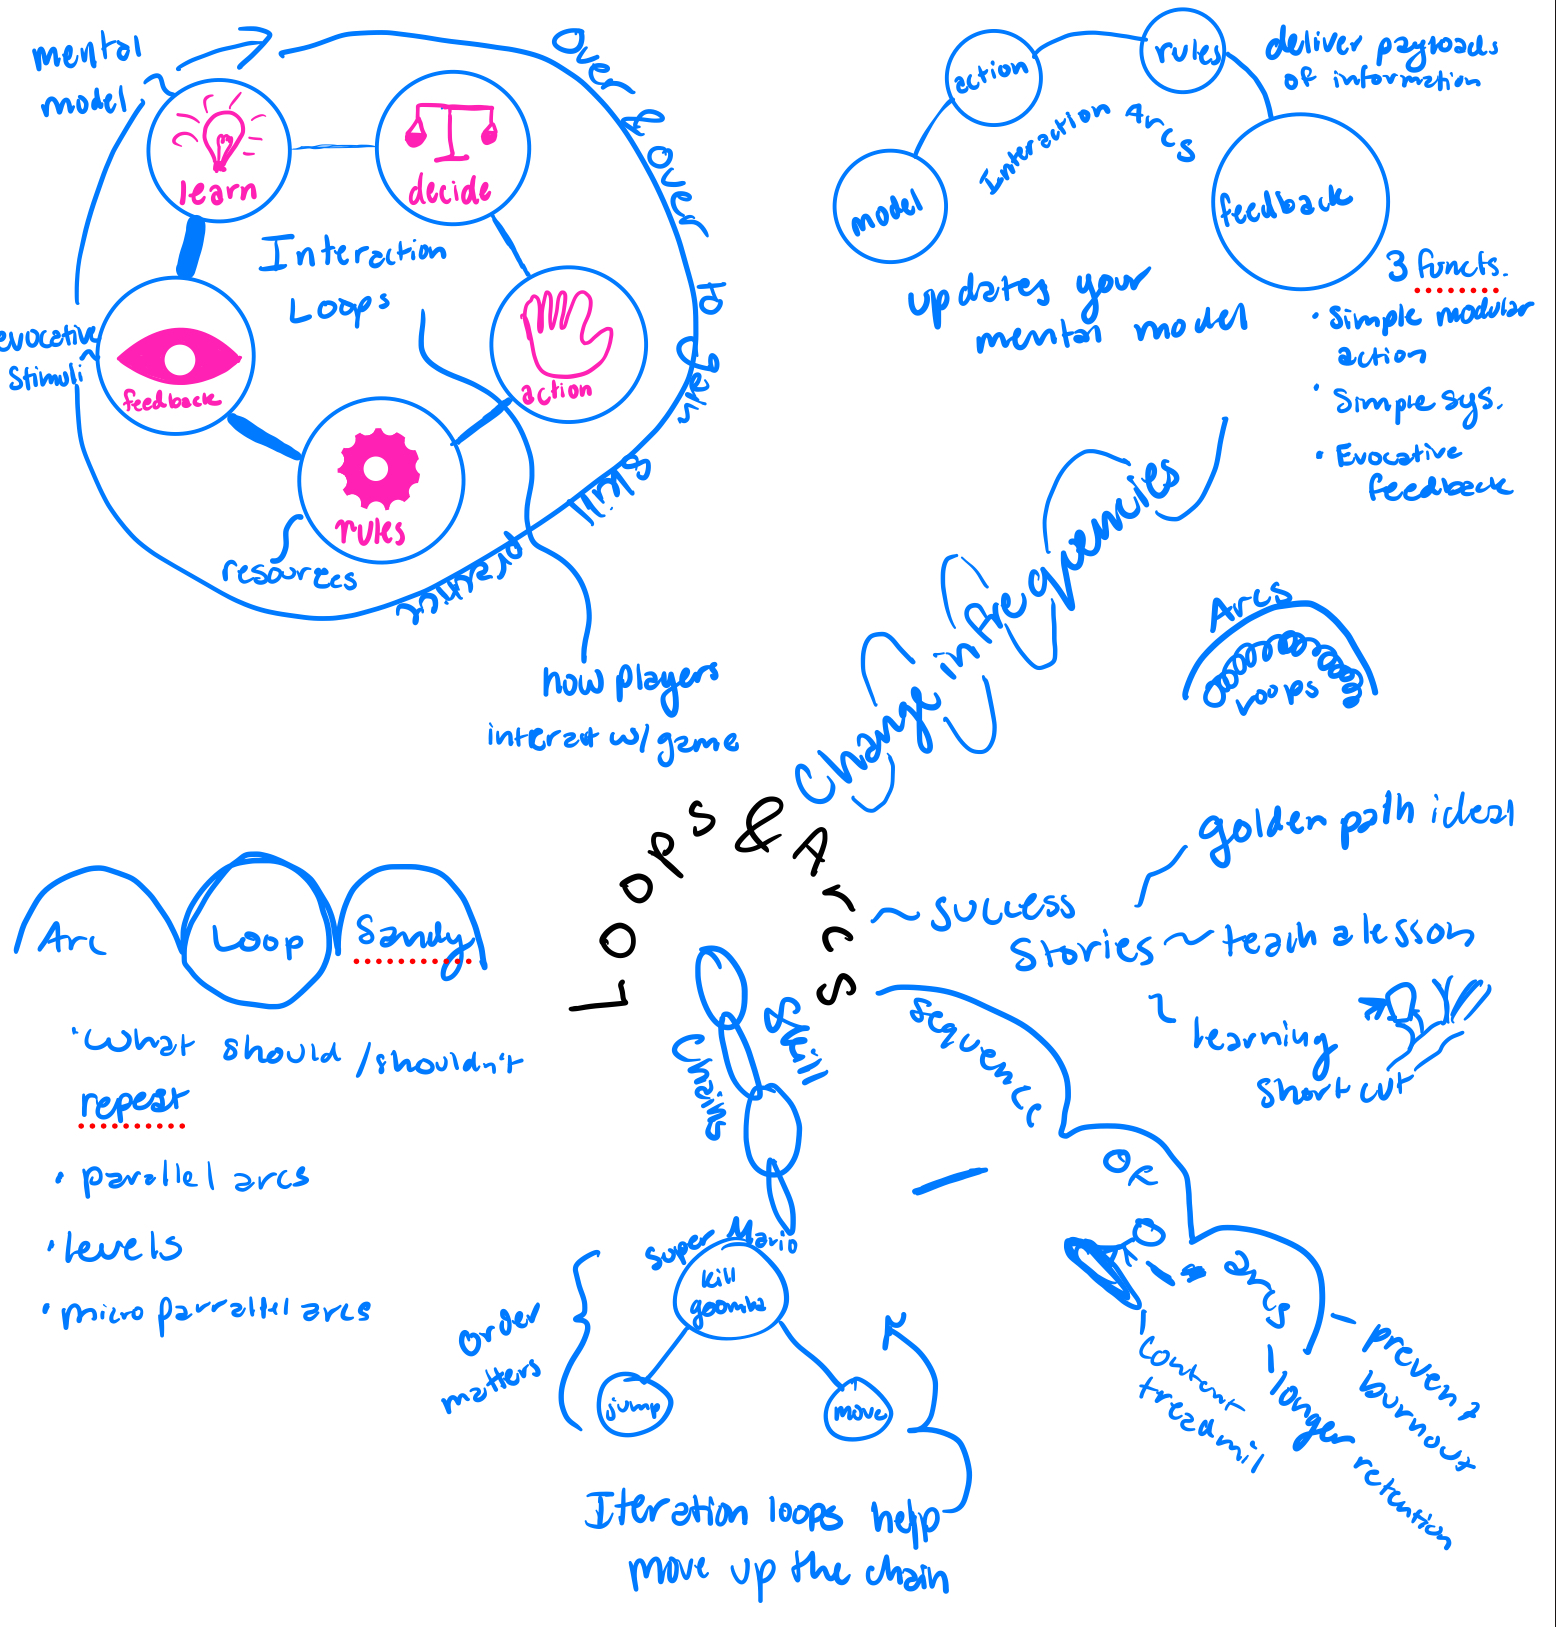 mental
model
learn
decide
Interaction
Loops
action
evocative
Stimuli
feedback
rules
resources
Over & Over to gain skill practice
how players
interact w/ game
model
action
rules
feedback
Interaction Arcs
deliver payloads
of information
updates your
mental model
3 functs.
• Simple modular
action
• Simple sys.
• Evocative
feedback
Change in Frequencies
Arcs
Loops
Loops & Arcs
Success
Stories
golden path ideal
teach a lesson
learning
shortcut
sequence
OF
arcs
content
treadmil
longer retention
prevent
burnout
Skill
Chains
Super Mario
kill
goomba
jump
move
order
matters
Iteration loops help
move up the chain
Arc
Loop
Sandy
• What should/shouldn't
repeat
• parallel arcs
• levels
• micro parrallel arcs